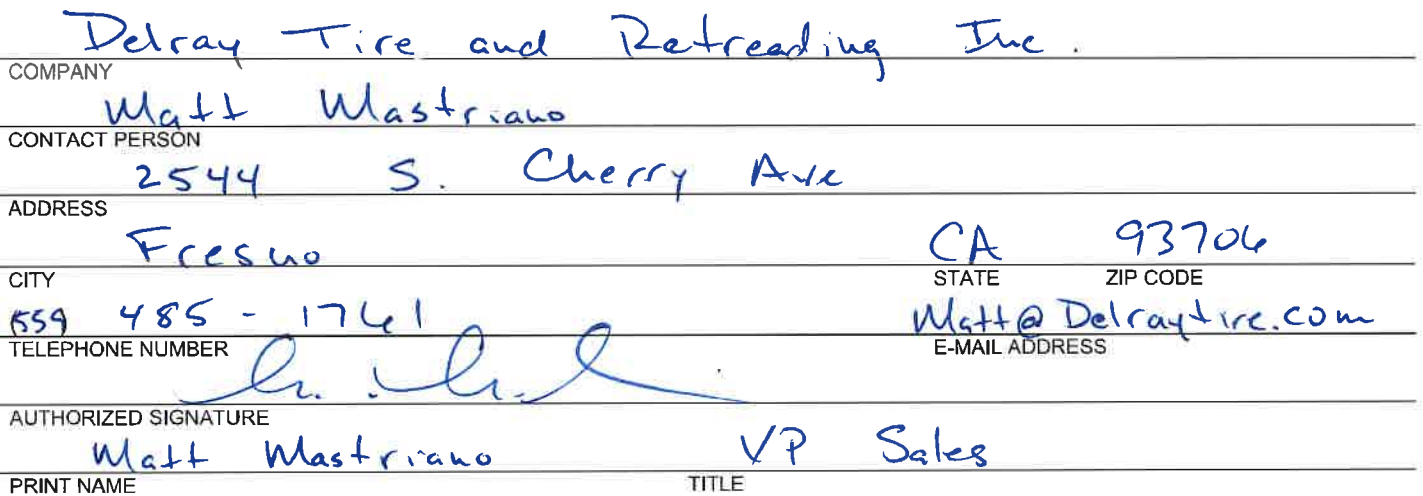 Delray Tire and Retreading Inc.
COMPANY
Matt Mastriano
CONTACT PERSON
2544 S. Cherry Ave
ADDRESS
Fresno CA 93706
CITY STATE ZIP CODE
(559 485-1761 Matt@Delraytire.com
TELEPHONE NUMBER E-MAIL ADDRESS
AUTHORIZED SIGNATURE
Matt Mastriano VP Sales
PRINT NAME TITLE